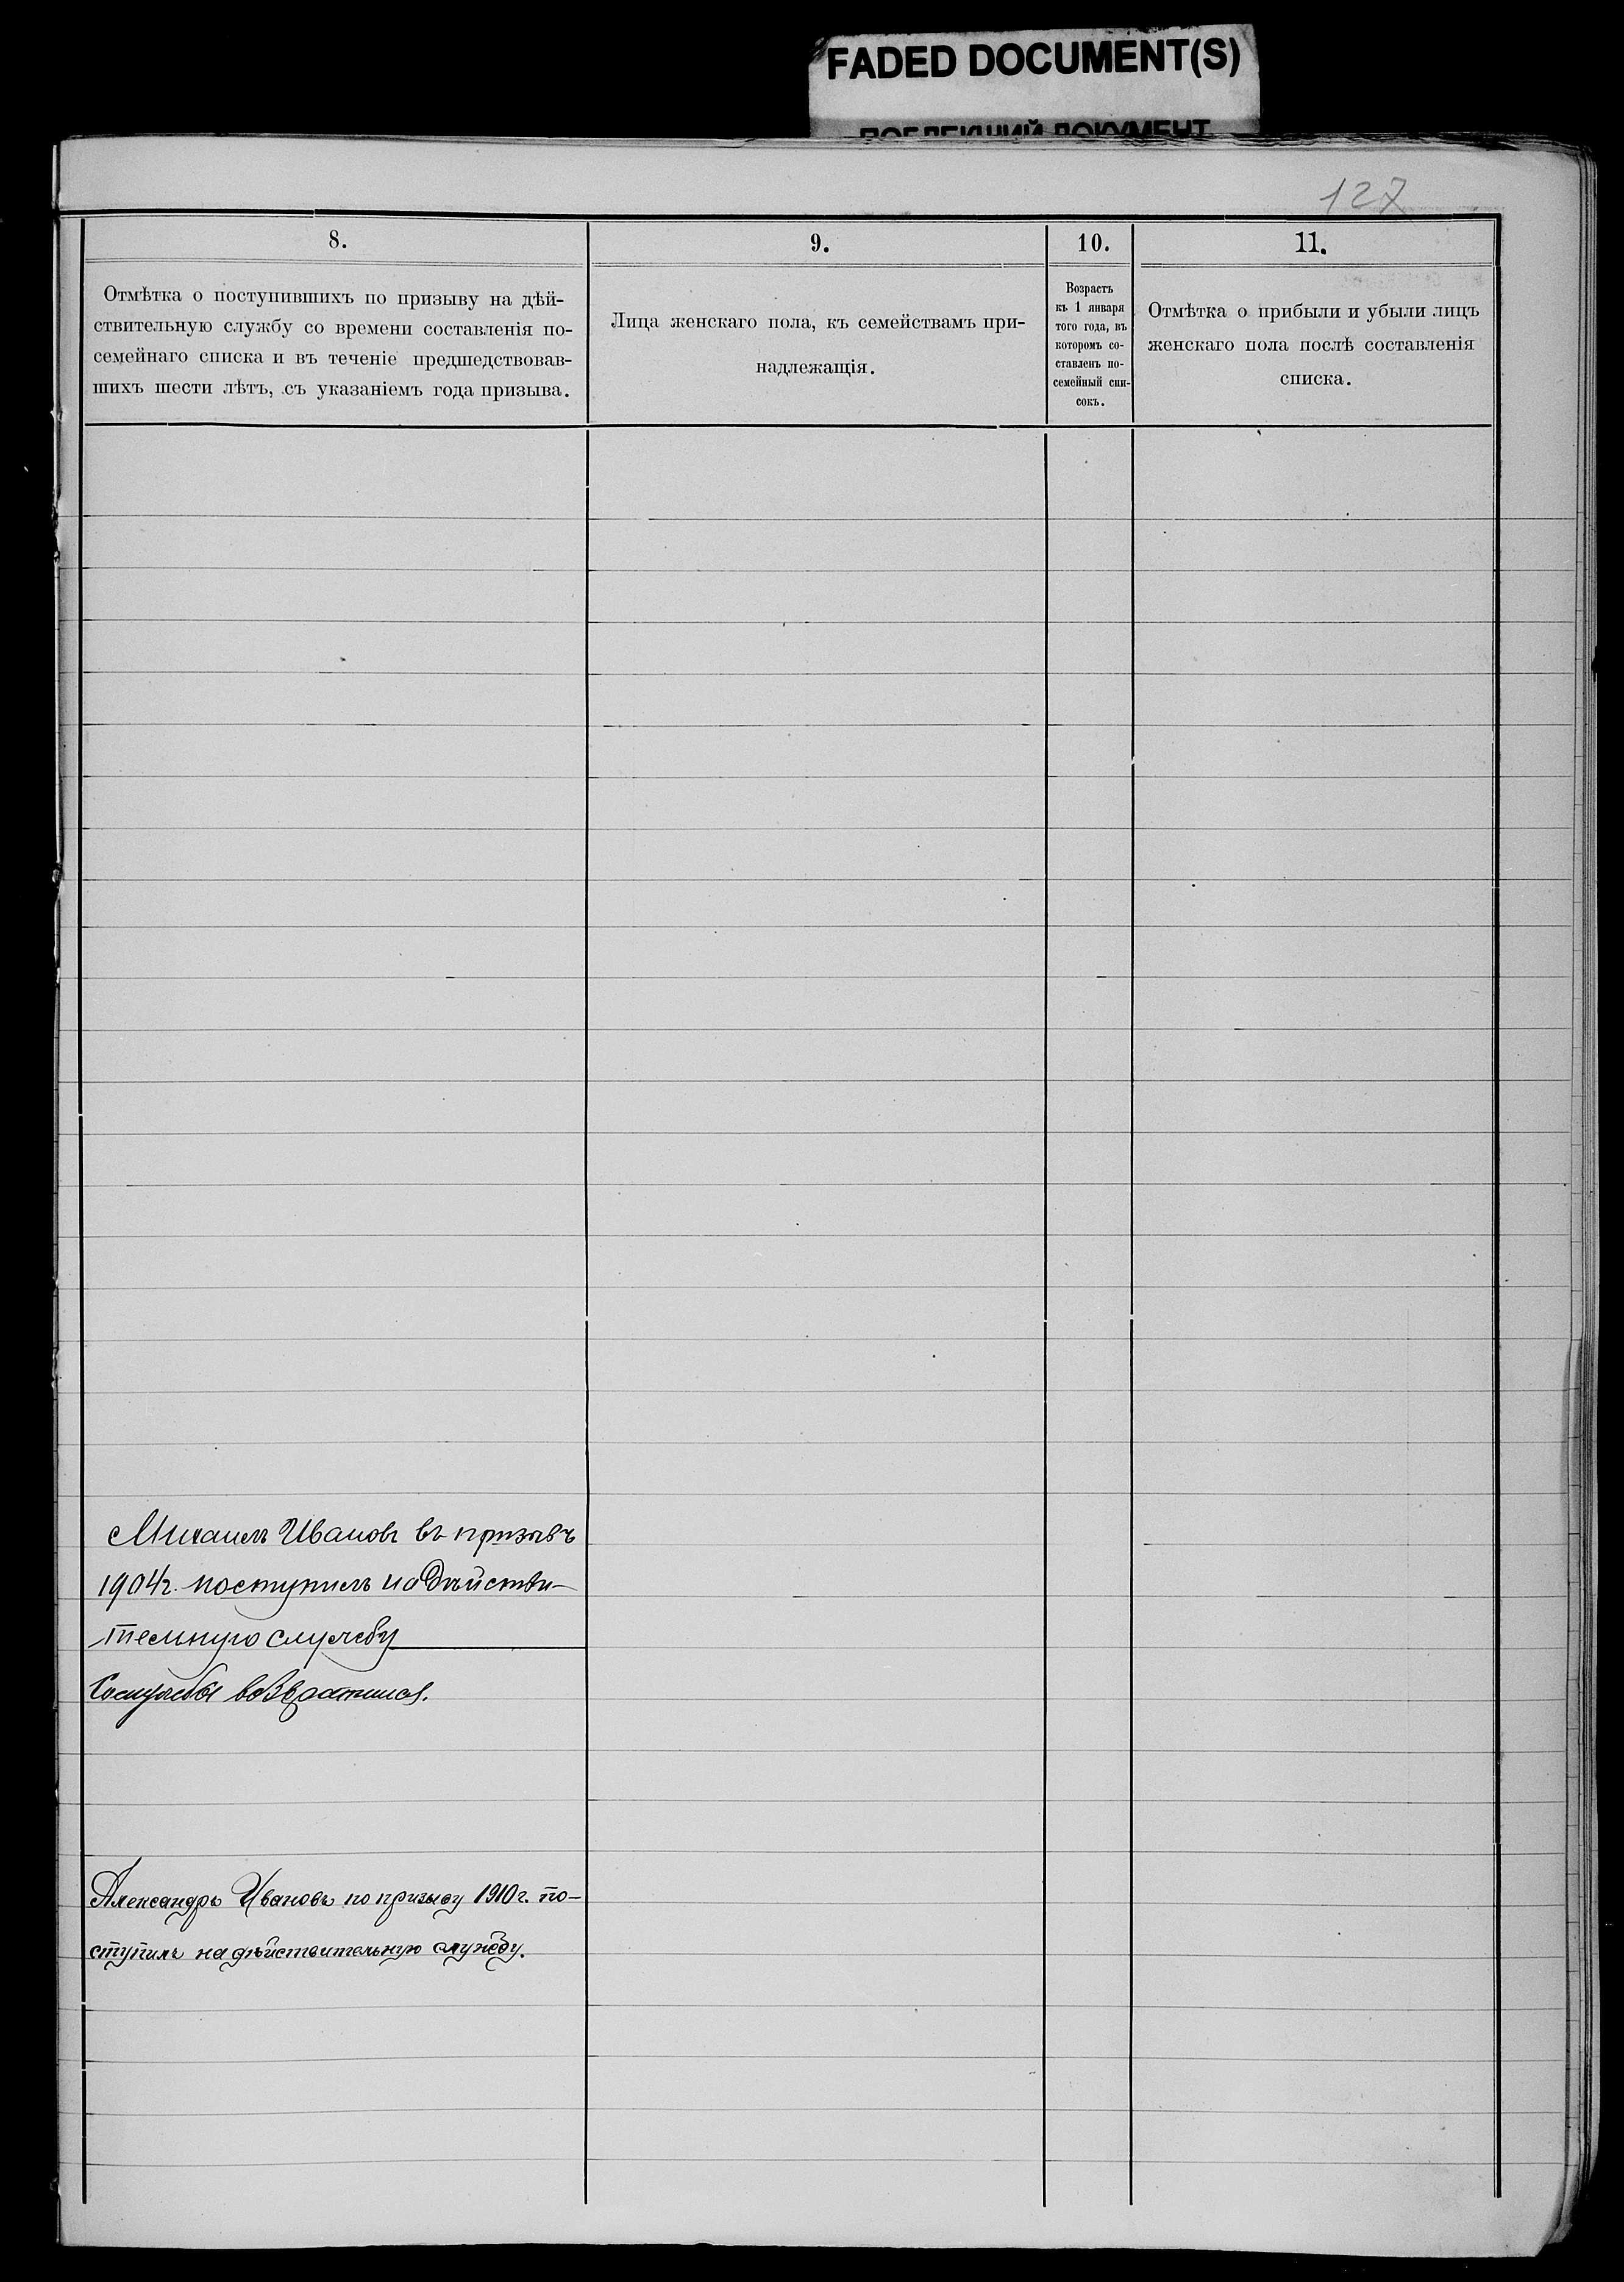 FADED DOCUMENT(S)
ПОБЛЕКШИЙ ДОКУМЕНТ
127
8.
Отмѣтка о поступившихъ по призыву на дѣй-
ствительную службу со времени составленія по-
семейнаго списка и въ теченіе предшедствовав-
шихъ шести лѣтъ, съ указаніемъ года призыва.
9.
Лица женскаго пола, къ семействамъ при-
надлежащія.
10.
Возрастъ
къ 1 января
того года, въ
которомъ со-
ставленъ по-
семейный спи-
сокъ.
11.
Отмѣтка о прибыли и убыли лицъ
женскаго пола послѣ составленія
списка.
Михаилъ Ивановъ въ призывъ
1904г. поступилъ на дѣйстви-
тельную службу
Со службы возвратился.
Александръ Ивановъ по призыву 1910г. по-
ступилъ на дѣйствительную службу.